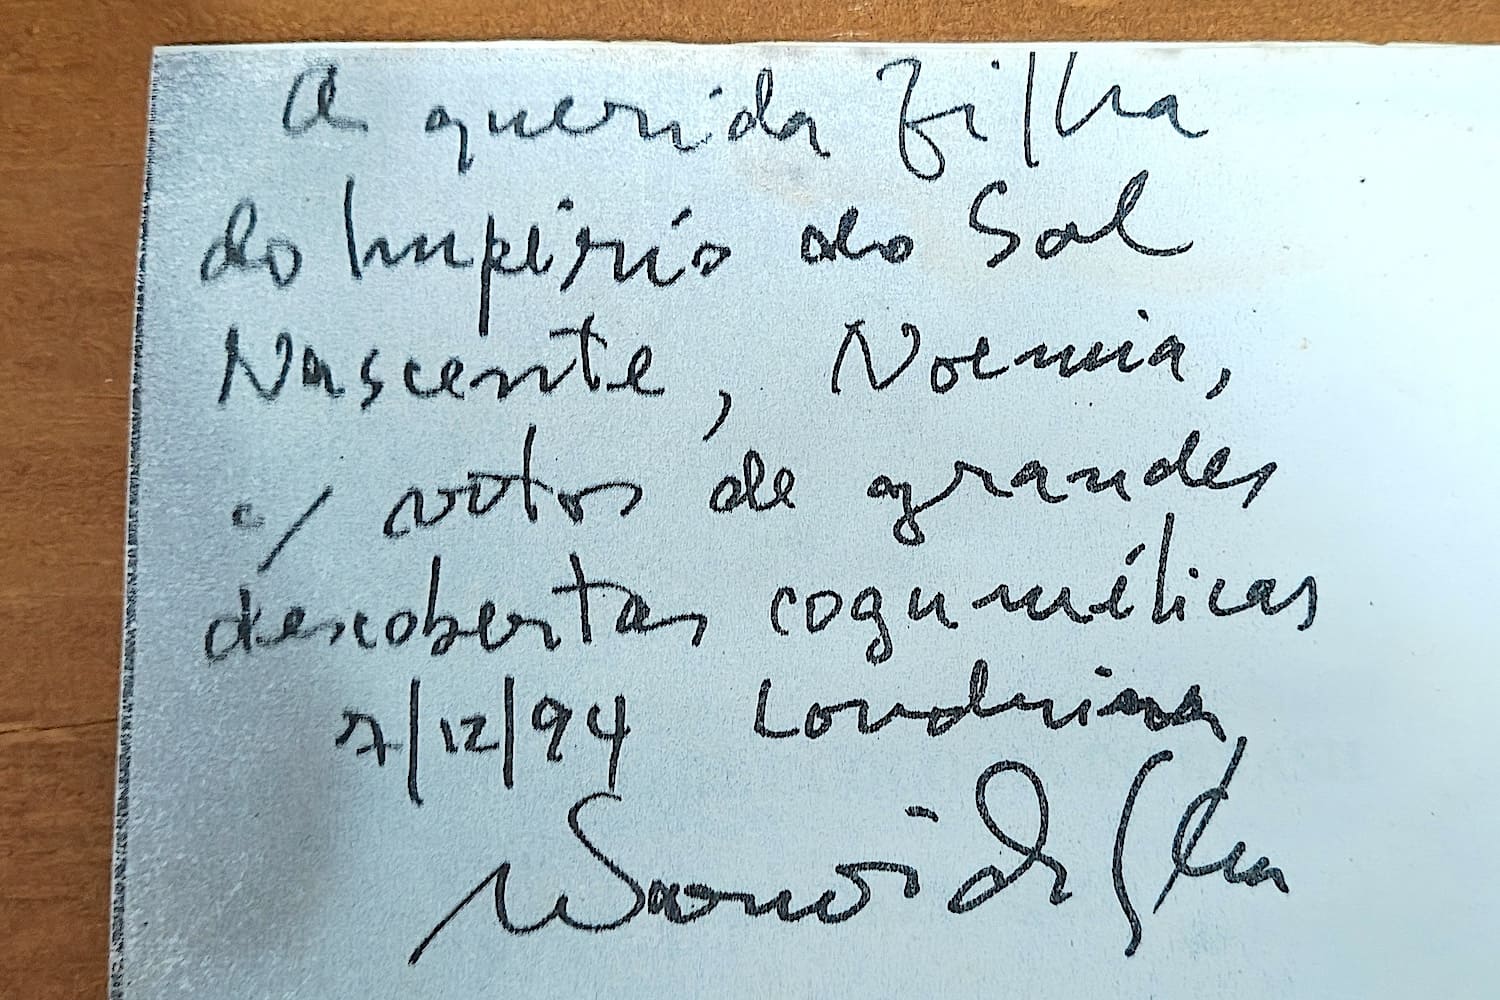 A querida filha
do Império do Sol
Nascente, Noemia,
c/ votos de grandes
descobertas cogumélicas
7/12/94 Londrina